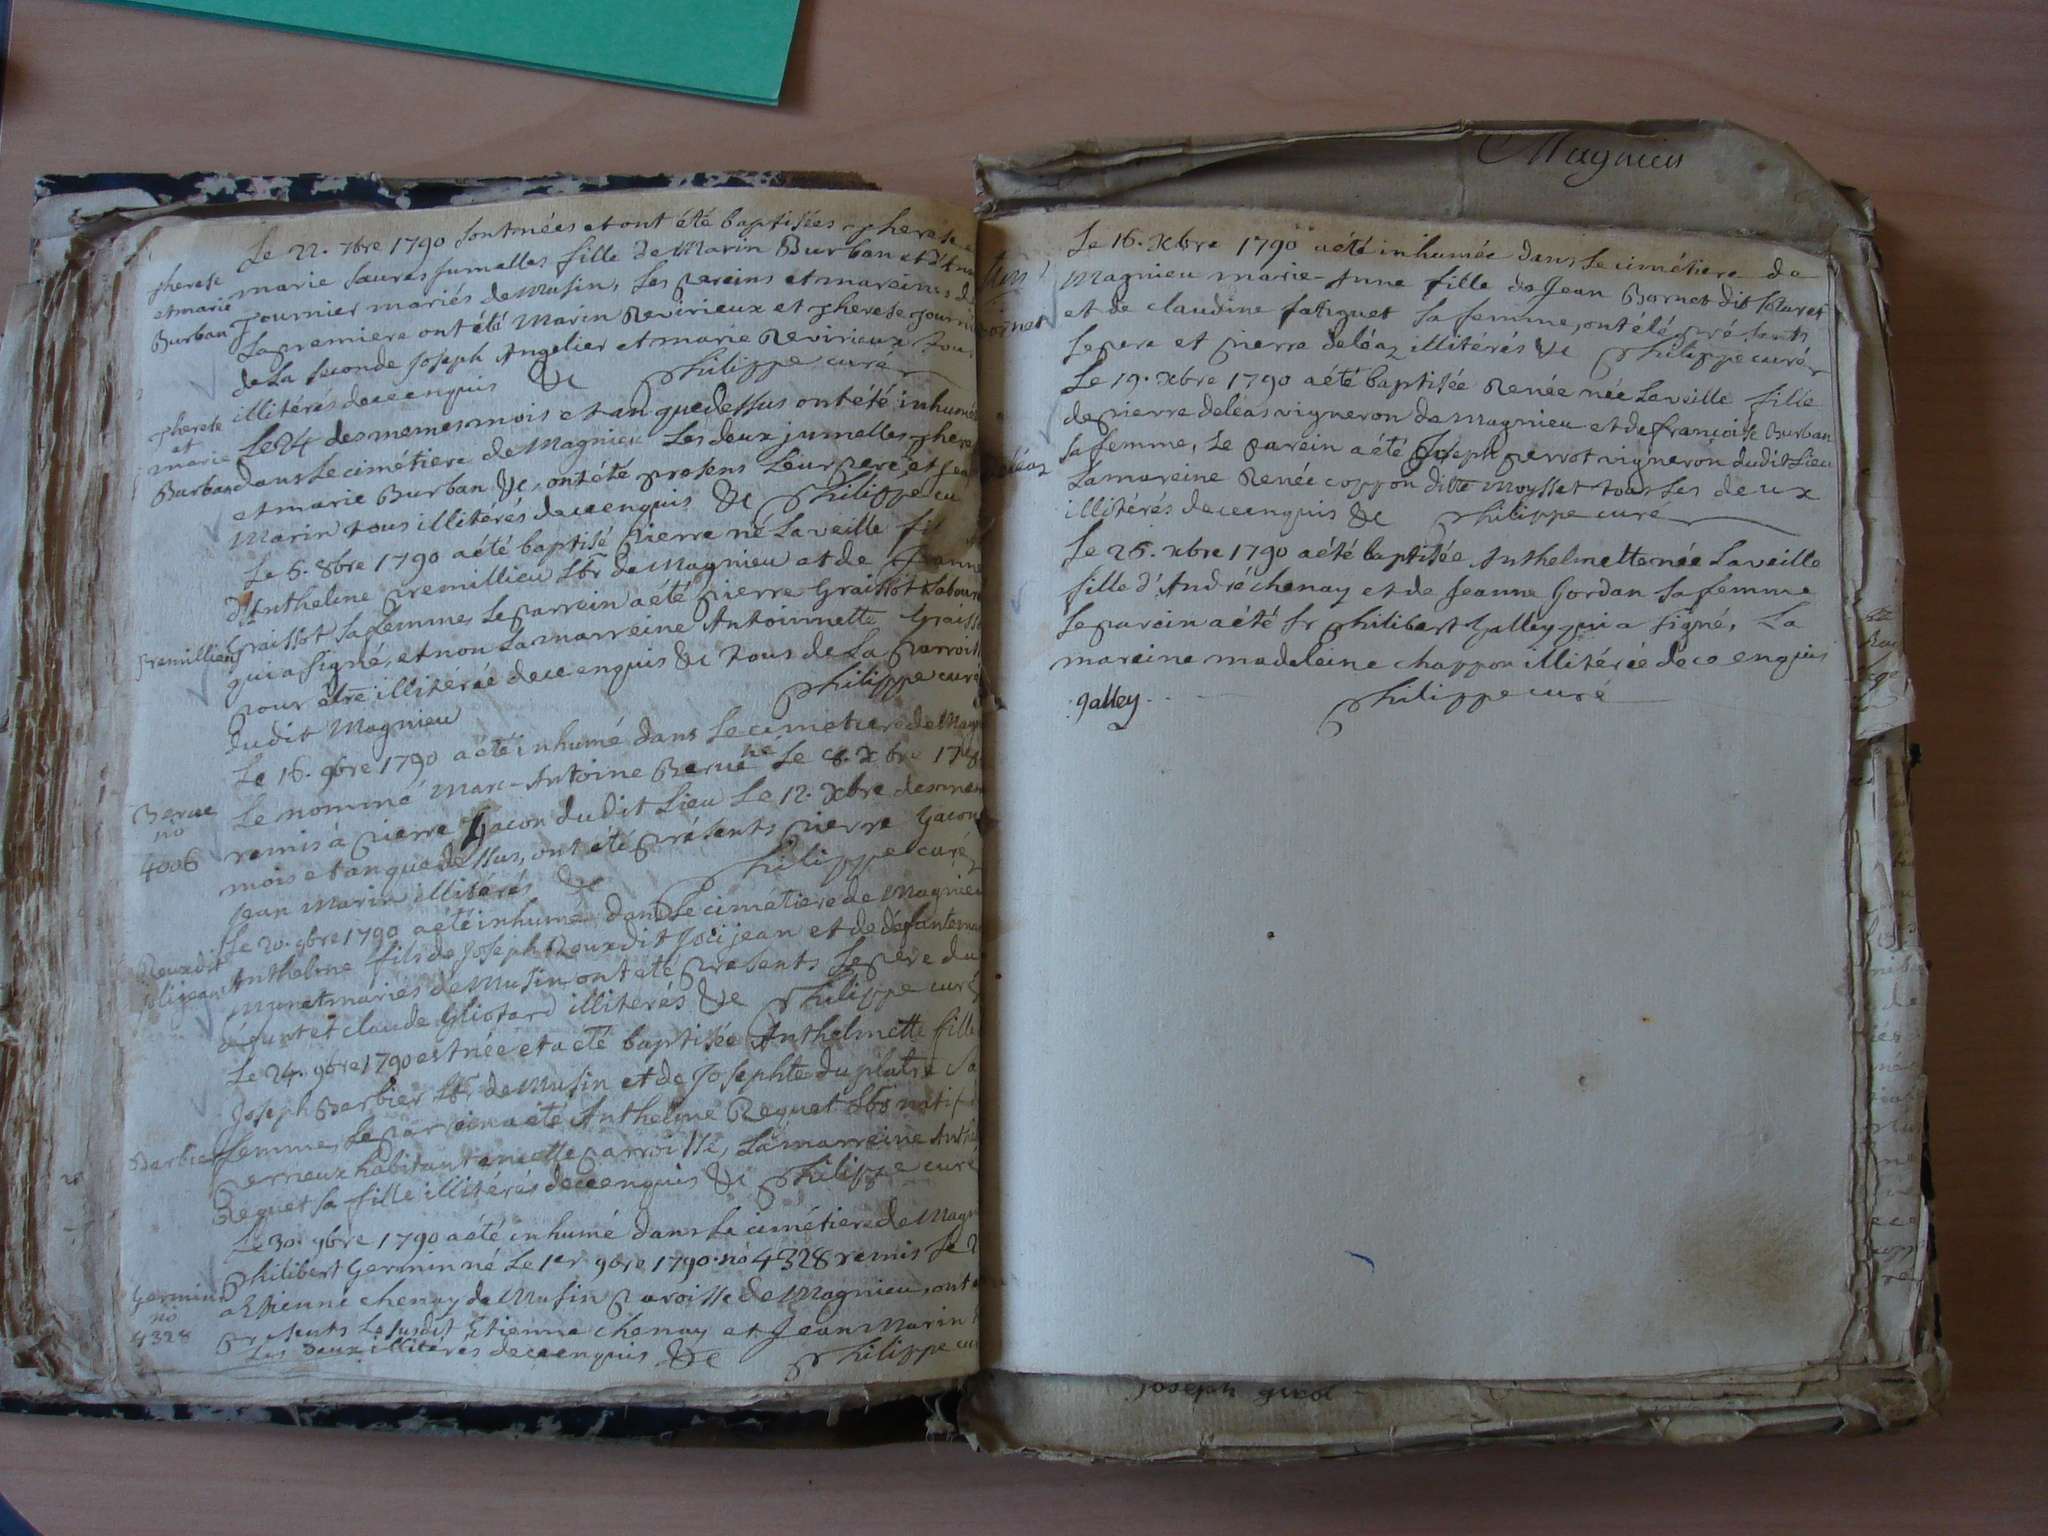 Le 22. 7bre 1790 sont nées et ont été baptisées therese
therese et marie Burban
marie sœures jumelles fille de Marin Burban et d'
fournier mariés de Musin, Les pareins et mareines de
La premiere ont été Marin Revirieux et therese fournier
de La seconde Joseph Angelier et marie Revirieux tous
illitérés de ce enquis &c Philippe curé
therese et marie Burban
Le 24 des memes mois et an que dessus ont été inhumées
dans Le cimétiere de Magnieu Les deux jumelles there
et marie Burban &c, ont été presens Leur pere et
Marin tous illitérés de ce enquis &c Philippe cu
Le 5. 8bre 1790 a été baptisé Pierre né La veille fil
d'Anthelme premillieu Lbr de Magnieu et de
premillieu
Graissot sa femme, Le parrein a été pierre Graissot Labour
qui a signé, et non La marreine Antoinnette Graiss
pour être illitérée de ce enquis &c tous de La parroiss
dudit Magnieu Philippe curé
Le 16. 9bre 1790 a été inhumé dans Le cimetiere de Magn
Berue no 4006
Le nommé Marc-Antoine Berue né Le 8. Xbre 17
remis à pierre Gacon dudit Lieu Le 12. Xbre des mem
mois et an que dessus, ont été présents pierre Gacon
Jean Marin illitérés &c Philippe curé
Le 20. 9bre 1790 a été inhumé dans Le cimétiere de Magnieu
Roux dit Jolijean
Anthelme fils de Joseph Roux dit Joli jean et de défante
Munet mariés de Musin, ont été presents Le pere du
défunt et claude Gliotard illiterés &c Philippe curé
Le 24. 9bre 1790 est née et a été baptisée Anthelmette fille
Joseph Barbier Lbr de Musin et de Josephte du platre sa
Barbier
femme, Le parrein a été Anthelme Requet Lbr natif
perrieux habitant en cette parroisse, La marreine Anth
Requet sa fille illitérés de ce enquis &c Philippe curé
Le 30. 9bre 1790 a été inhumé dans Le cimétiere de Magn
Germin no 4328
Philibert Germin né Le 1er 9bre 1790. no 4328 remis Le 2
a Etienne chenay de Musin paroisse de Magnieu, ont
presents Le susdit Etienne chenay et Jean Marin
Les deux illitérés de ce enquis &c Philippe cu
Magnieu
Le 16. Xbre 1790 a été inhumée dans Le cimétiere de
Magnieu marie-Anne fille de Jean Bornet dit
et de claudine fatiguet sa femme, ont été présents
Le pere et pierre deléaz illitérés &c Philippe curé
Le 19. Xbre 1790 a été baptisée Renée née La veille fille
de pierre deléas vigneron de Magnieu et de françoise Burban
sa femme, Le parein a été Joseph perrot vigneron dudit Lieu
La mareine Renée coppon ditte Moysset tous Les deux
illitérés de ce enquis &c Philippe curé
Le 25. xbre 1790 a été baptisée Anthelmette née La veille
fille d'André chenay et de Jeanne Jordan sa femme
Le parein a été Sr philibert Galley qui a signé, La
mareine madeleine chappon illitérée de ce enquis
galley. Philippe curé
joseph girod